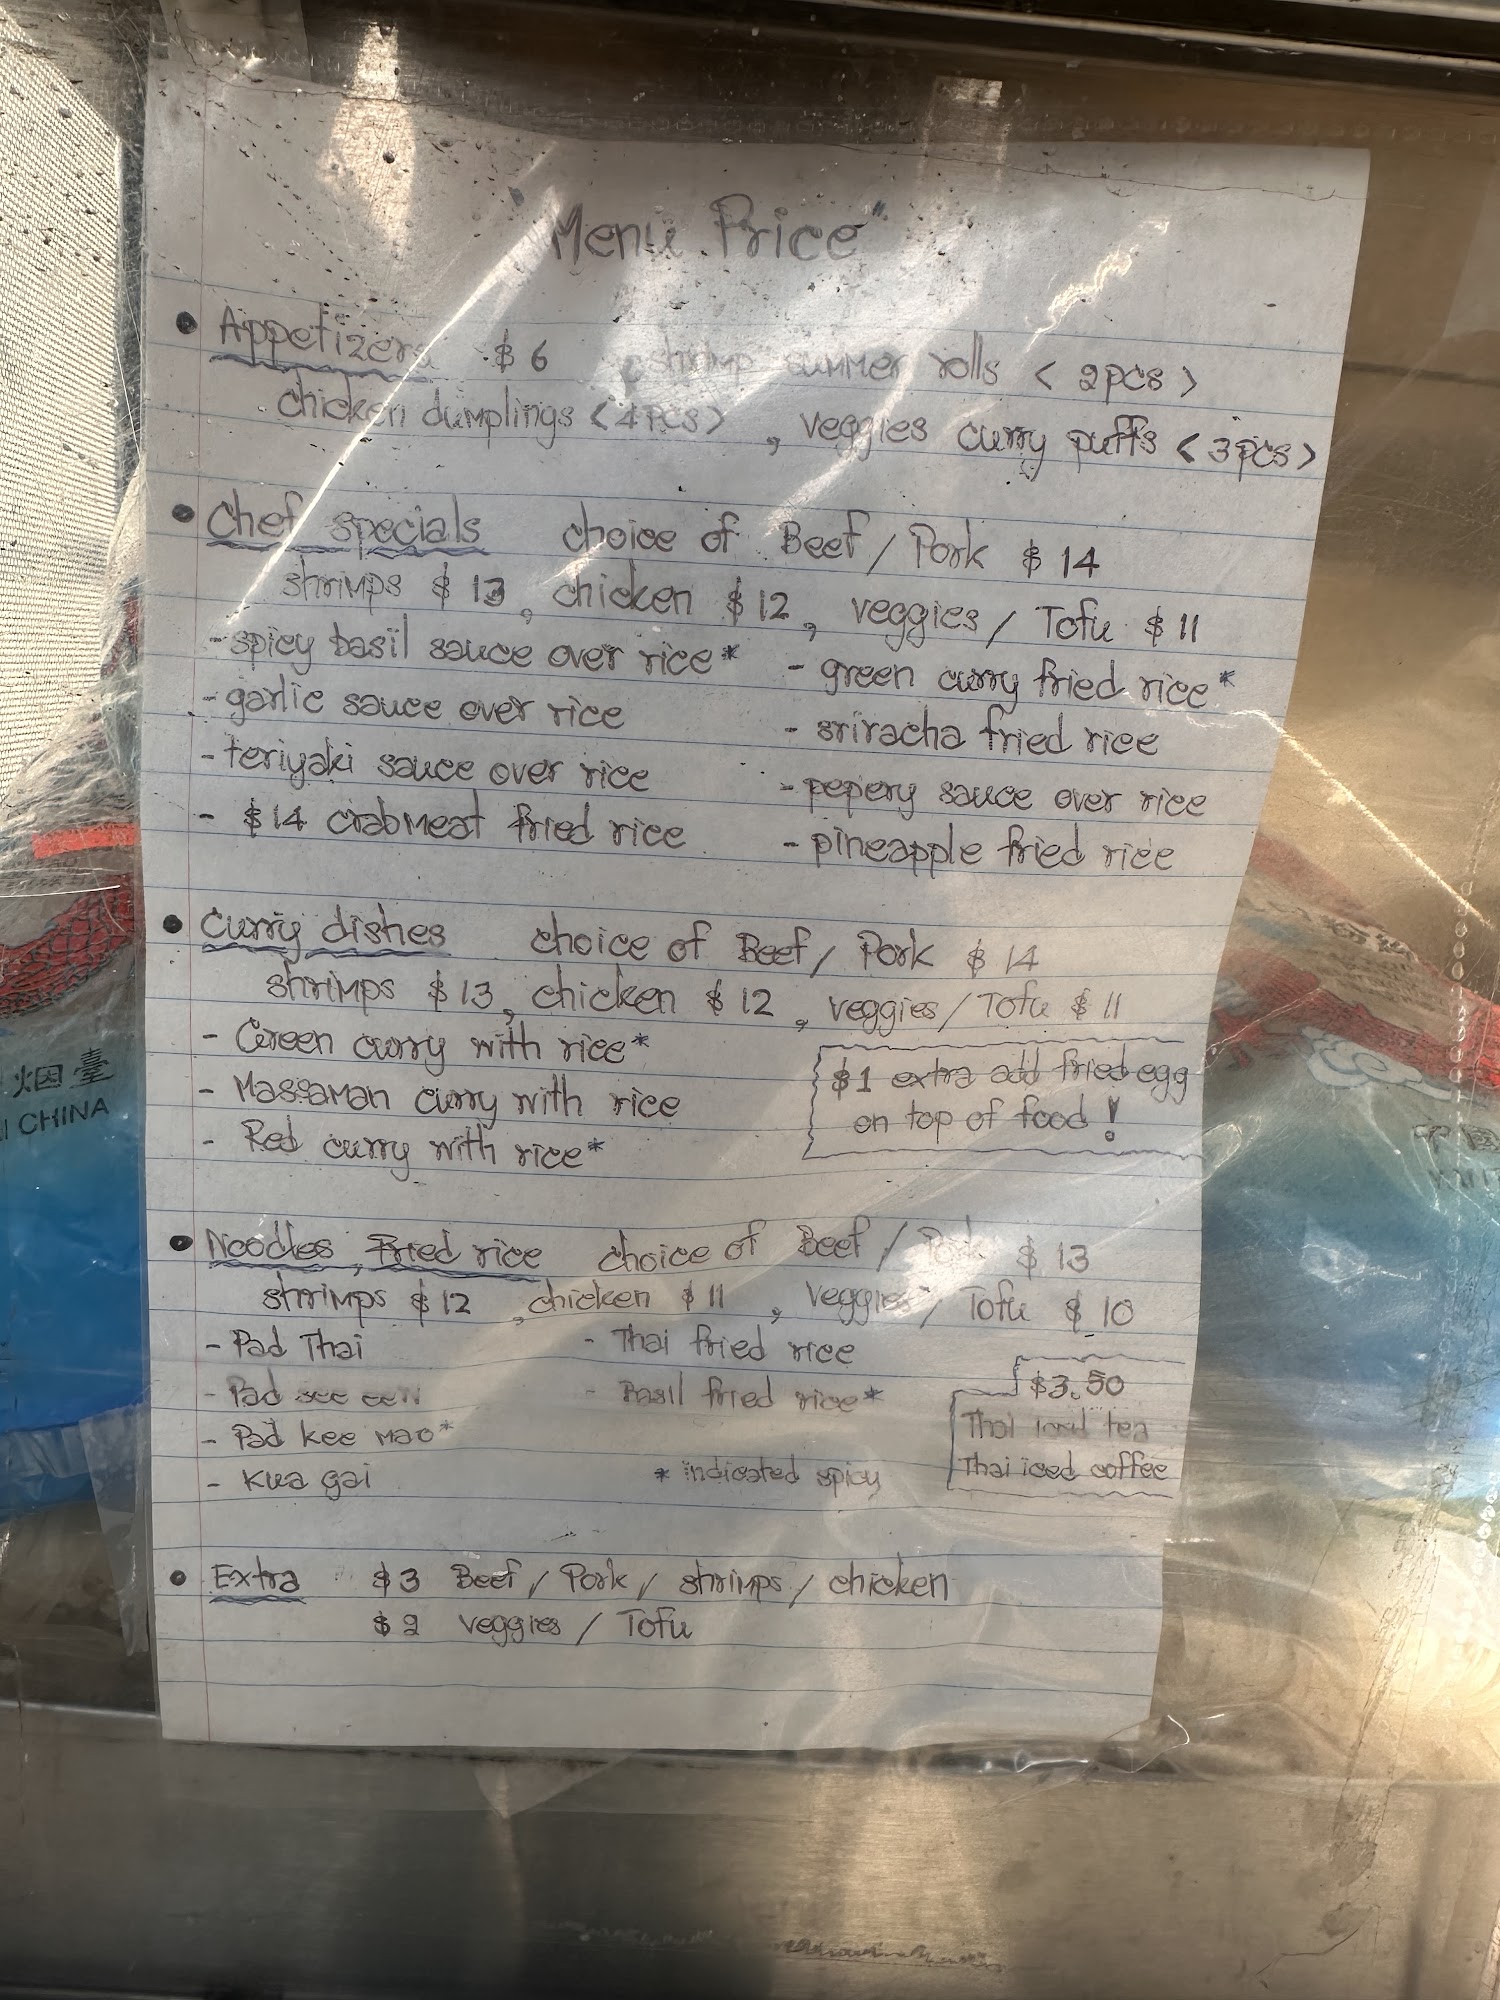 "Menu Price"
• Appetizers $6 shrimp summer rolls <2pcs>
chicken dumplings <4pcs> , veggies curry puffs <3pcs>
• Chef specials choice of Beef / Pork $14
shrimps $13, chicken $12, veggies / Tofu $11
- spicy basil sauce over rice* - green curry fried rice*
- garlic sauce over rice - sriracha fried rice
- teriyaki sauce over rice - pepery sauce over rice
- $14 crabmeat fried rice - pineapple fried rice
• Curry dishes choice of Beef / Pork $14
shrimps $13, chicken $12, veggies / Tofu $11
- Green curry with rice*
- Massaman curry with rice
- Red curry with rice*
$1 extra add fried egg
on top of food!
• Noodles, Fried rice choice of Beef / Pork $13
shrimps $12, chicken $11, veggies / Tofu $10
- Pad Thai - Thai fried rice
- Pad see eew - Basil fried rice*
- Pad kee mao*
- Kua gai * indicated spicy
$3.50
Thai iced tea
Thai iced coffee
• Extra $3 Beef / Pork / shrimps / chicken
$2 veggies / Tofu
烟臺
CHINA
中國